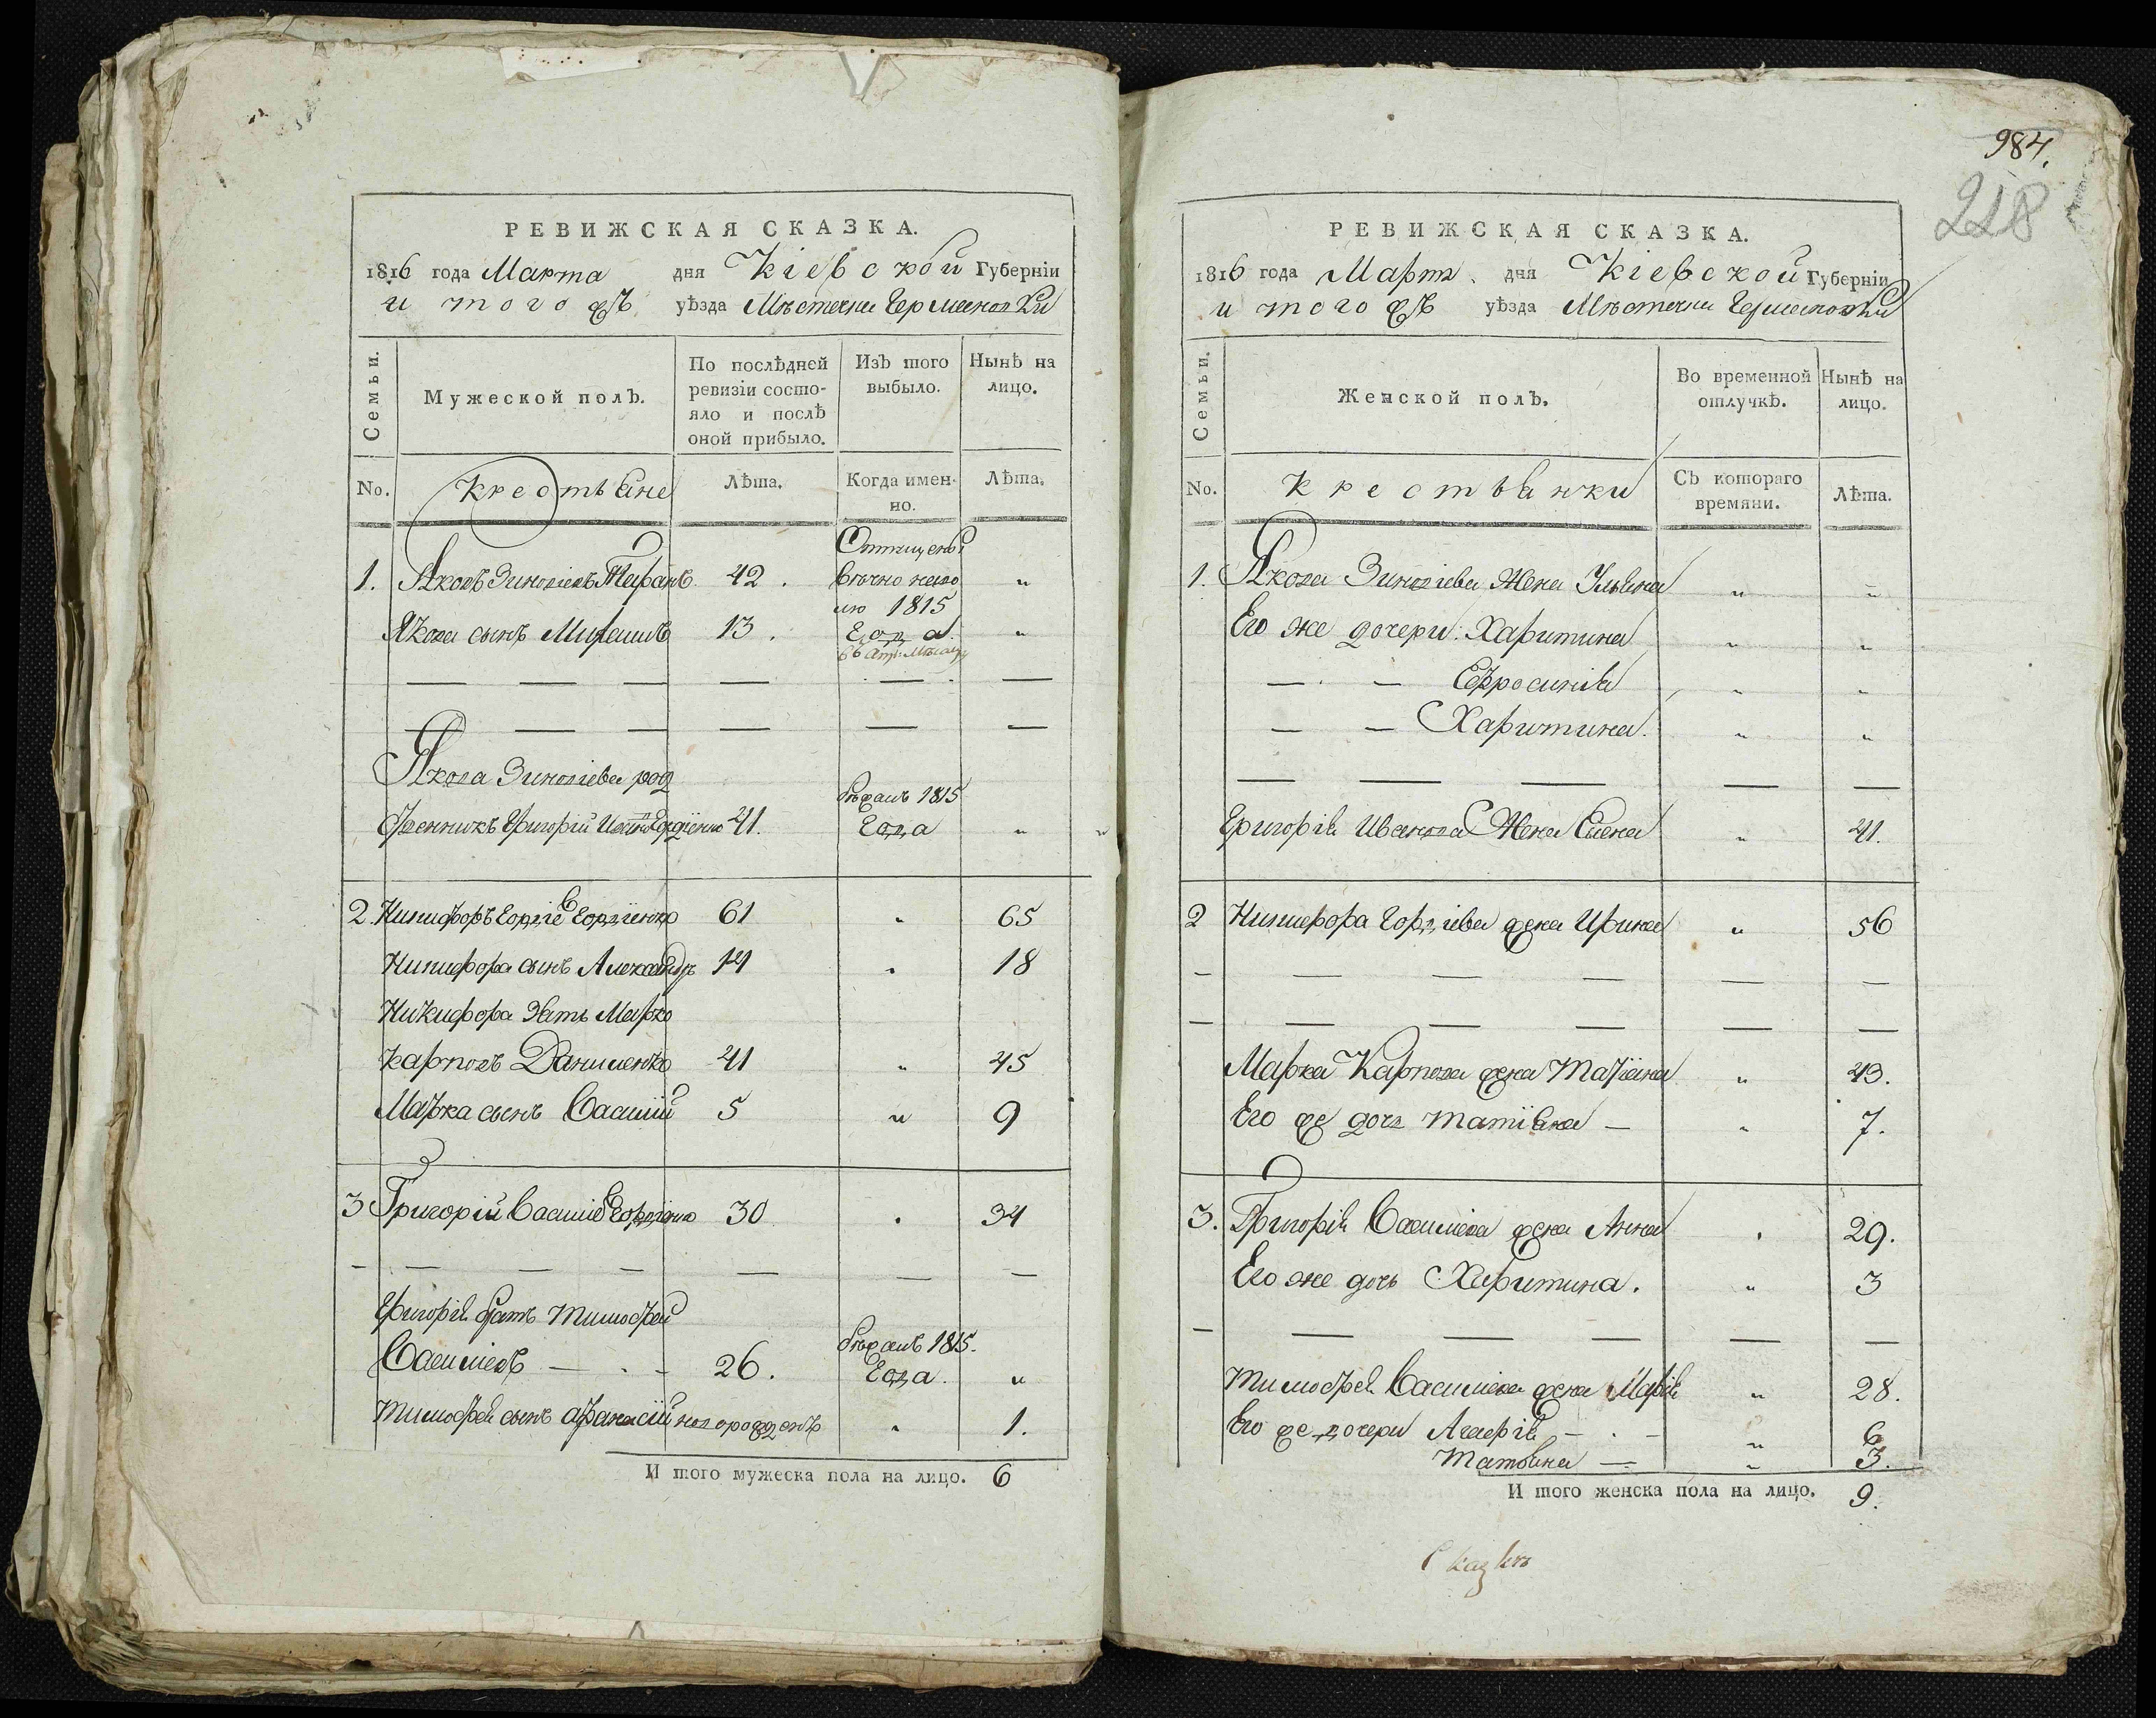 РЕВИЖСКАЯ СКАЗКА.
1816 года Марта дня Кіевской Губерніи
и тогожъ уѣзда Мѣстечка Германовки
Семьи.
Мужеской полъ.
По послѣдней ревизіи состо-
яло и послѣ
оной прибыло.
Изъ того
выбыло.
Нынѣ на
лицо.
No.
Крестьяне
Лѣта.
Когда имен-
но.
Лѣта.
1. Яковъ Зиновіевъ 42. вѣчно 1815 года "
Якова сынъ 13. "
Якова Зиновіева
Григорій 41. бѣжалъ 1815 года "
2. Никифоръ Гордіенко 61 " 65
Никифора сынъ Александръ 14 " 18
Никифора зять Марко
Карповъ Даниленко 41 " 45
Марка сынъ Василій 5 " 9
3 Григорій Василіевъ Гордіенко 30 " 34
Григорія братъ Тимофей
Василіевъ 26. бѣжалъ 1815. года "
Тимофея сынъ Афанасій новорожденъ " 1.
И того мужеска пола на лицо. 6
984.
218
РЕВИЖСКАЯ СКАЗКА.
1816 года Марта дня Кіевской Губерніи
и тогожъ уѣзда Мѣстечка Германовки
Семьи.
Женской полъ.
Во временной
отлучкѣ.
Нынѣ на
лицо.
No.
Крестьянки
Съ котораго
времяни.
Лѣта.
1. Якова Зиновіева жена Ульяна " "
Его же дочери: Харитина " "
Ефросинія " "
Харитина. " "
Григорія Иванова жена Елена " 41.
2 Никифора Гордіева жена Ирина " 56
Марка Карпова жена Татіана " 43.
Его же дочь Татіана " 7.
3. Григорія Василіева жена Анна " 29.
Его же дочь Харитина. " 3
Тимофея Василіева жена Марія " 28.
Его же дочери Агафія " 6
Татьяна " 3.
И того женска пола на лицо. 9.